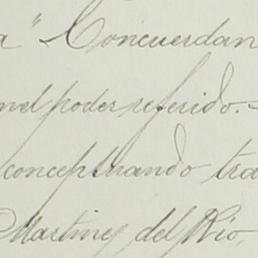 a" Concuerdan
en el poder referido.-
conceptuando tra
Martinez del Rio,